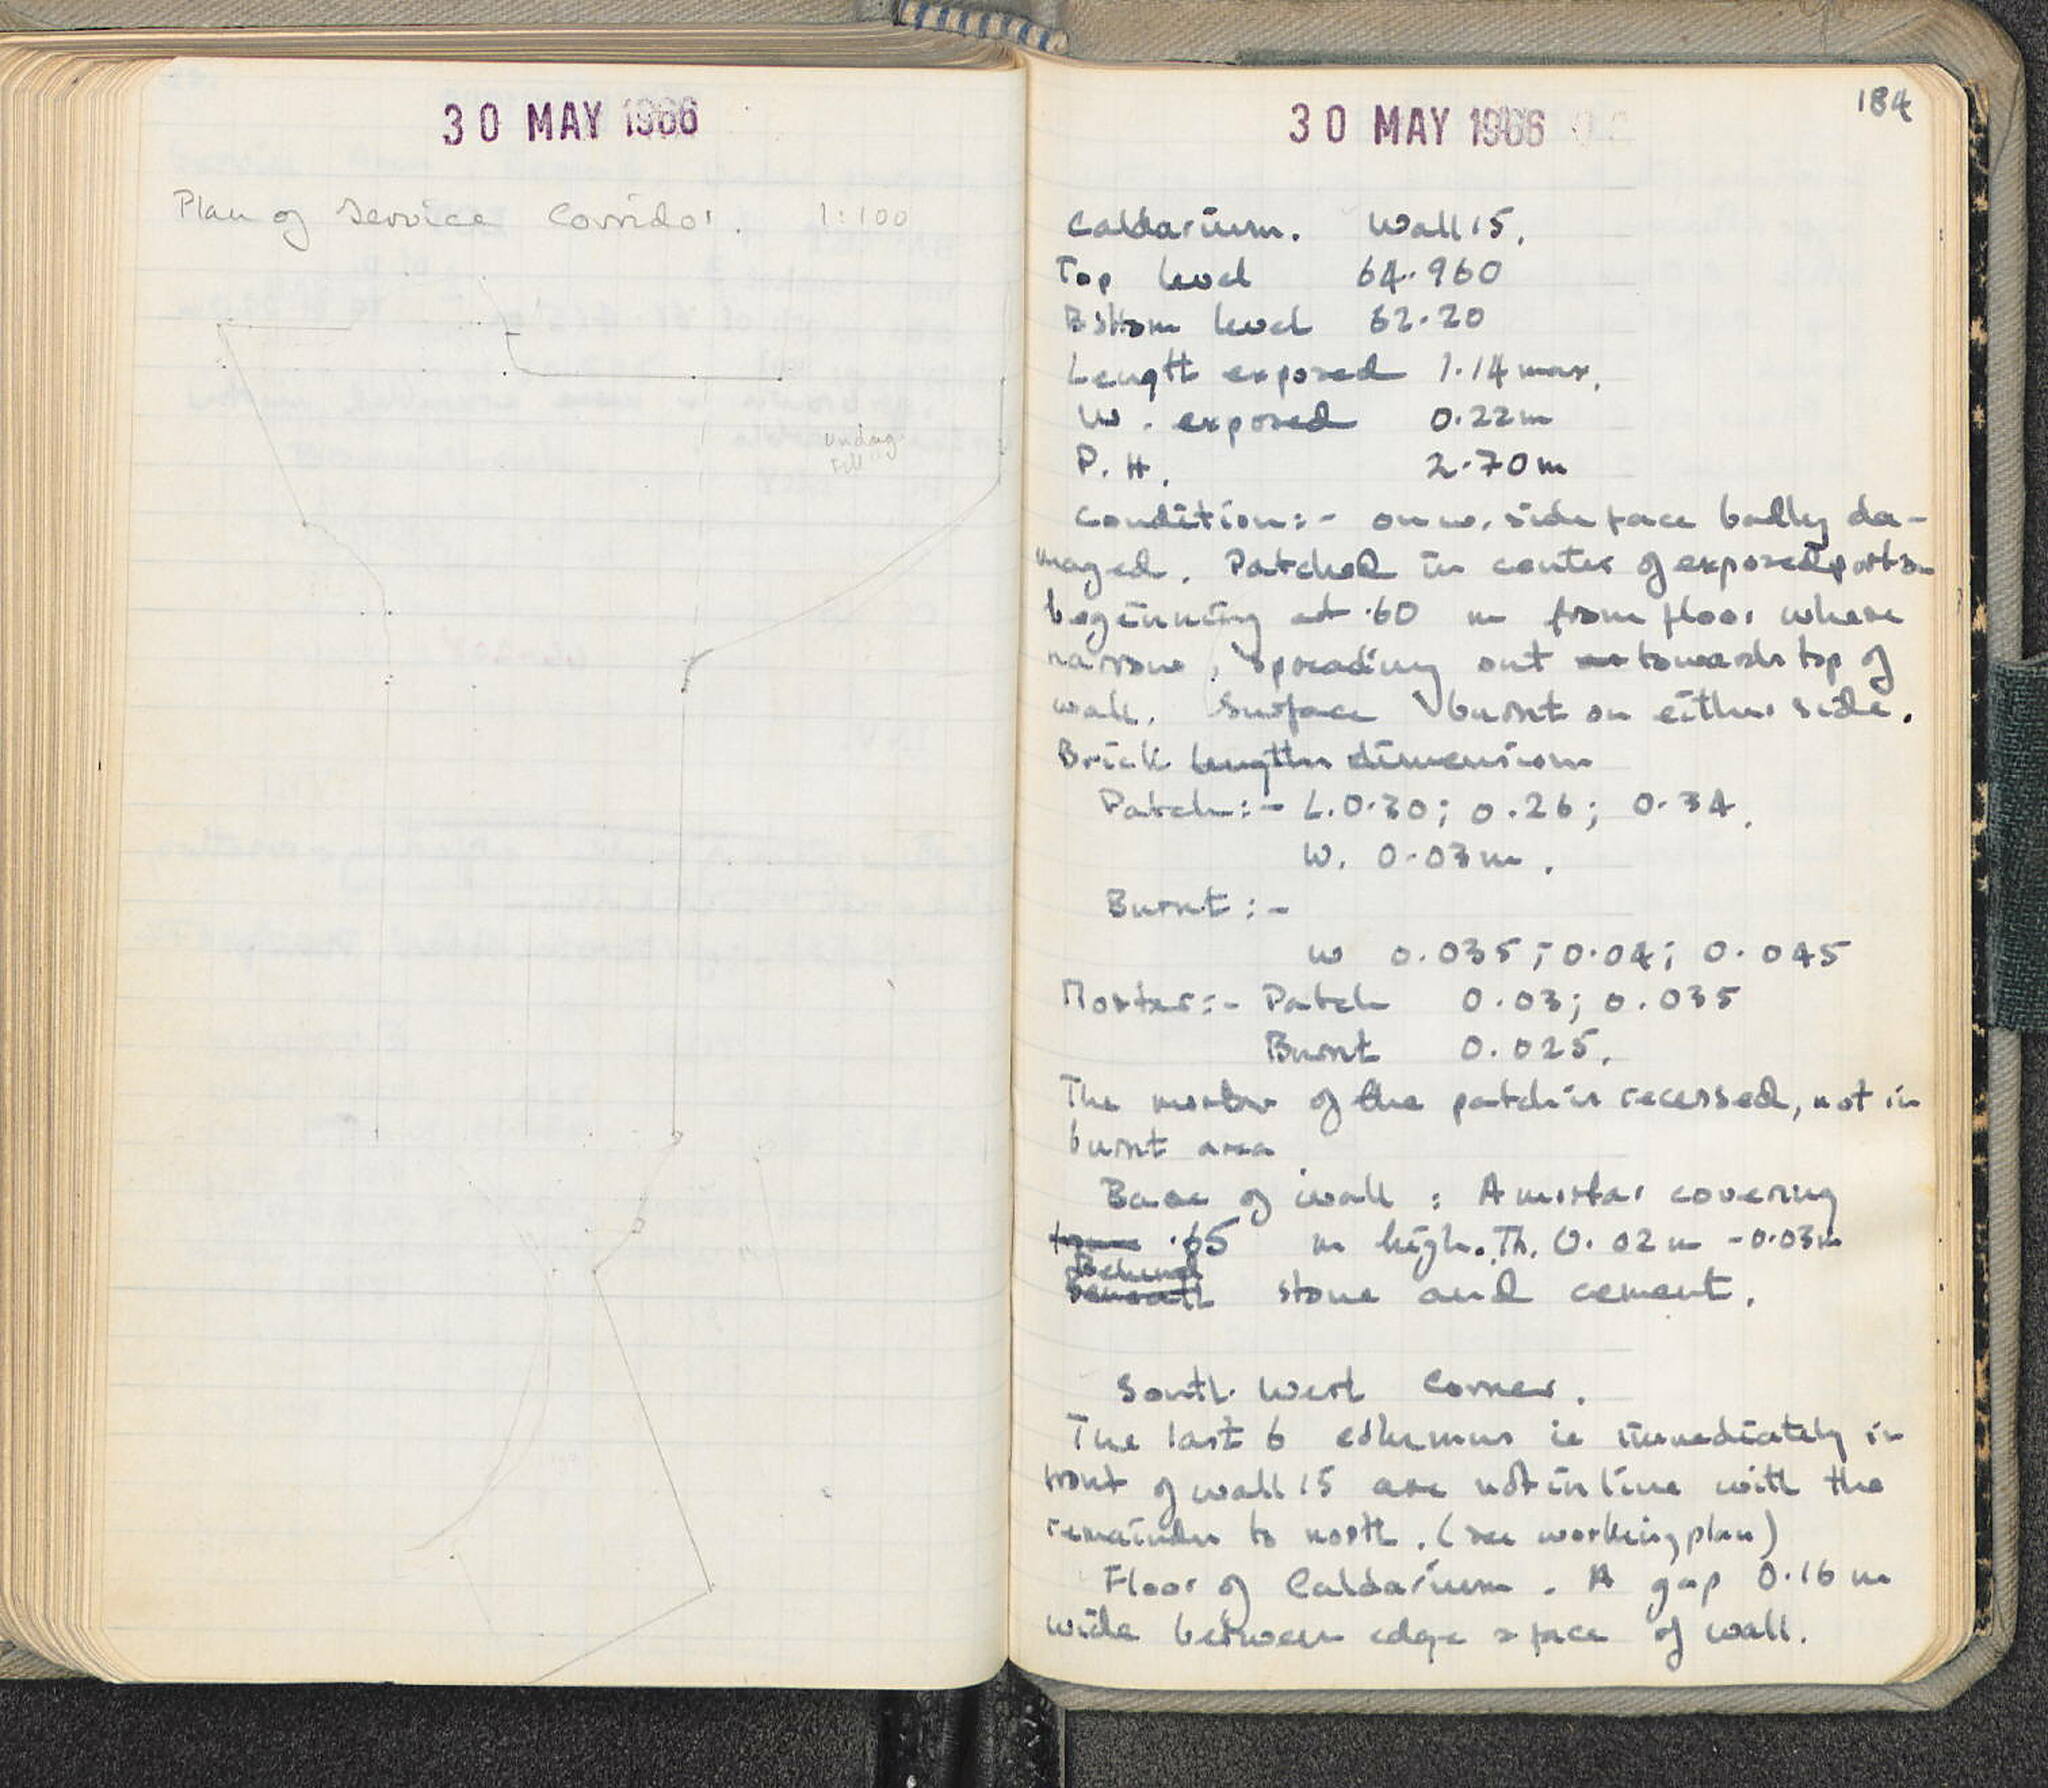 30 MAY 1966
Plan of Service Corridor. 1:100
undug
fill
30 MAY 1966
184
Caldarium. Wall 15.
Top level 64.960
Bottom level 62.20
Length exposed 1.14 max.
W. exposed 0.22m
P.H. 2.70m
Condition:- on w. side face badly da-
maged. Patched in center of exposed portion
beginning at .60 m from floor where
narrow, spreading out towards top of
wall. Surface burnt on either side.
Brick lengths dimensions
Patch:- L. 0.30; 0.26; 0.34.
W. 0.03m.
Burnt:-
W 0.035; 0.04; 0.045
Mortar:- Patch 0.03; 0.035
Burnt 0.025.
The mortar of the patch is recessed, not in
burnt area
Base of wall: A mortar covering
.65 m high. Th. 0.02m - 0.03m
Behind
beneath stone and cement.
South West Corner.
The last 6 columns ie immediately in
front of wall 15 are not in line with the
remainder to north. (see working plan)
Floor of Caldarium. A gap 0.16 m
wide between edge & face of wall.